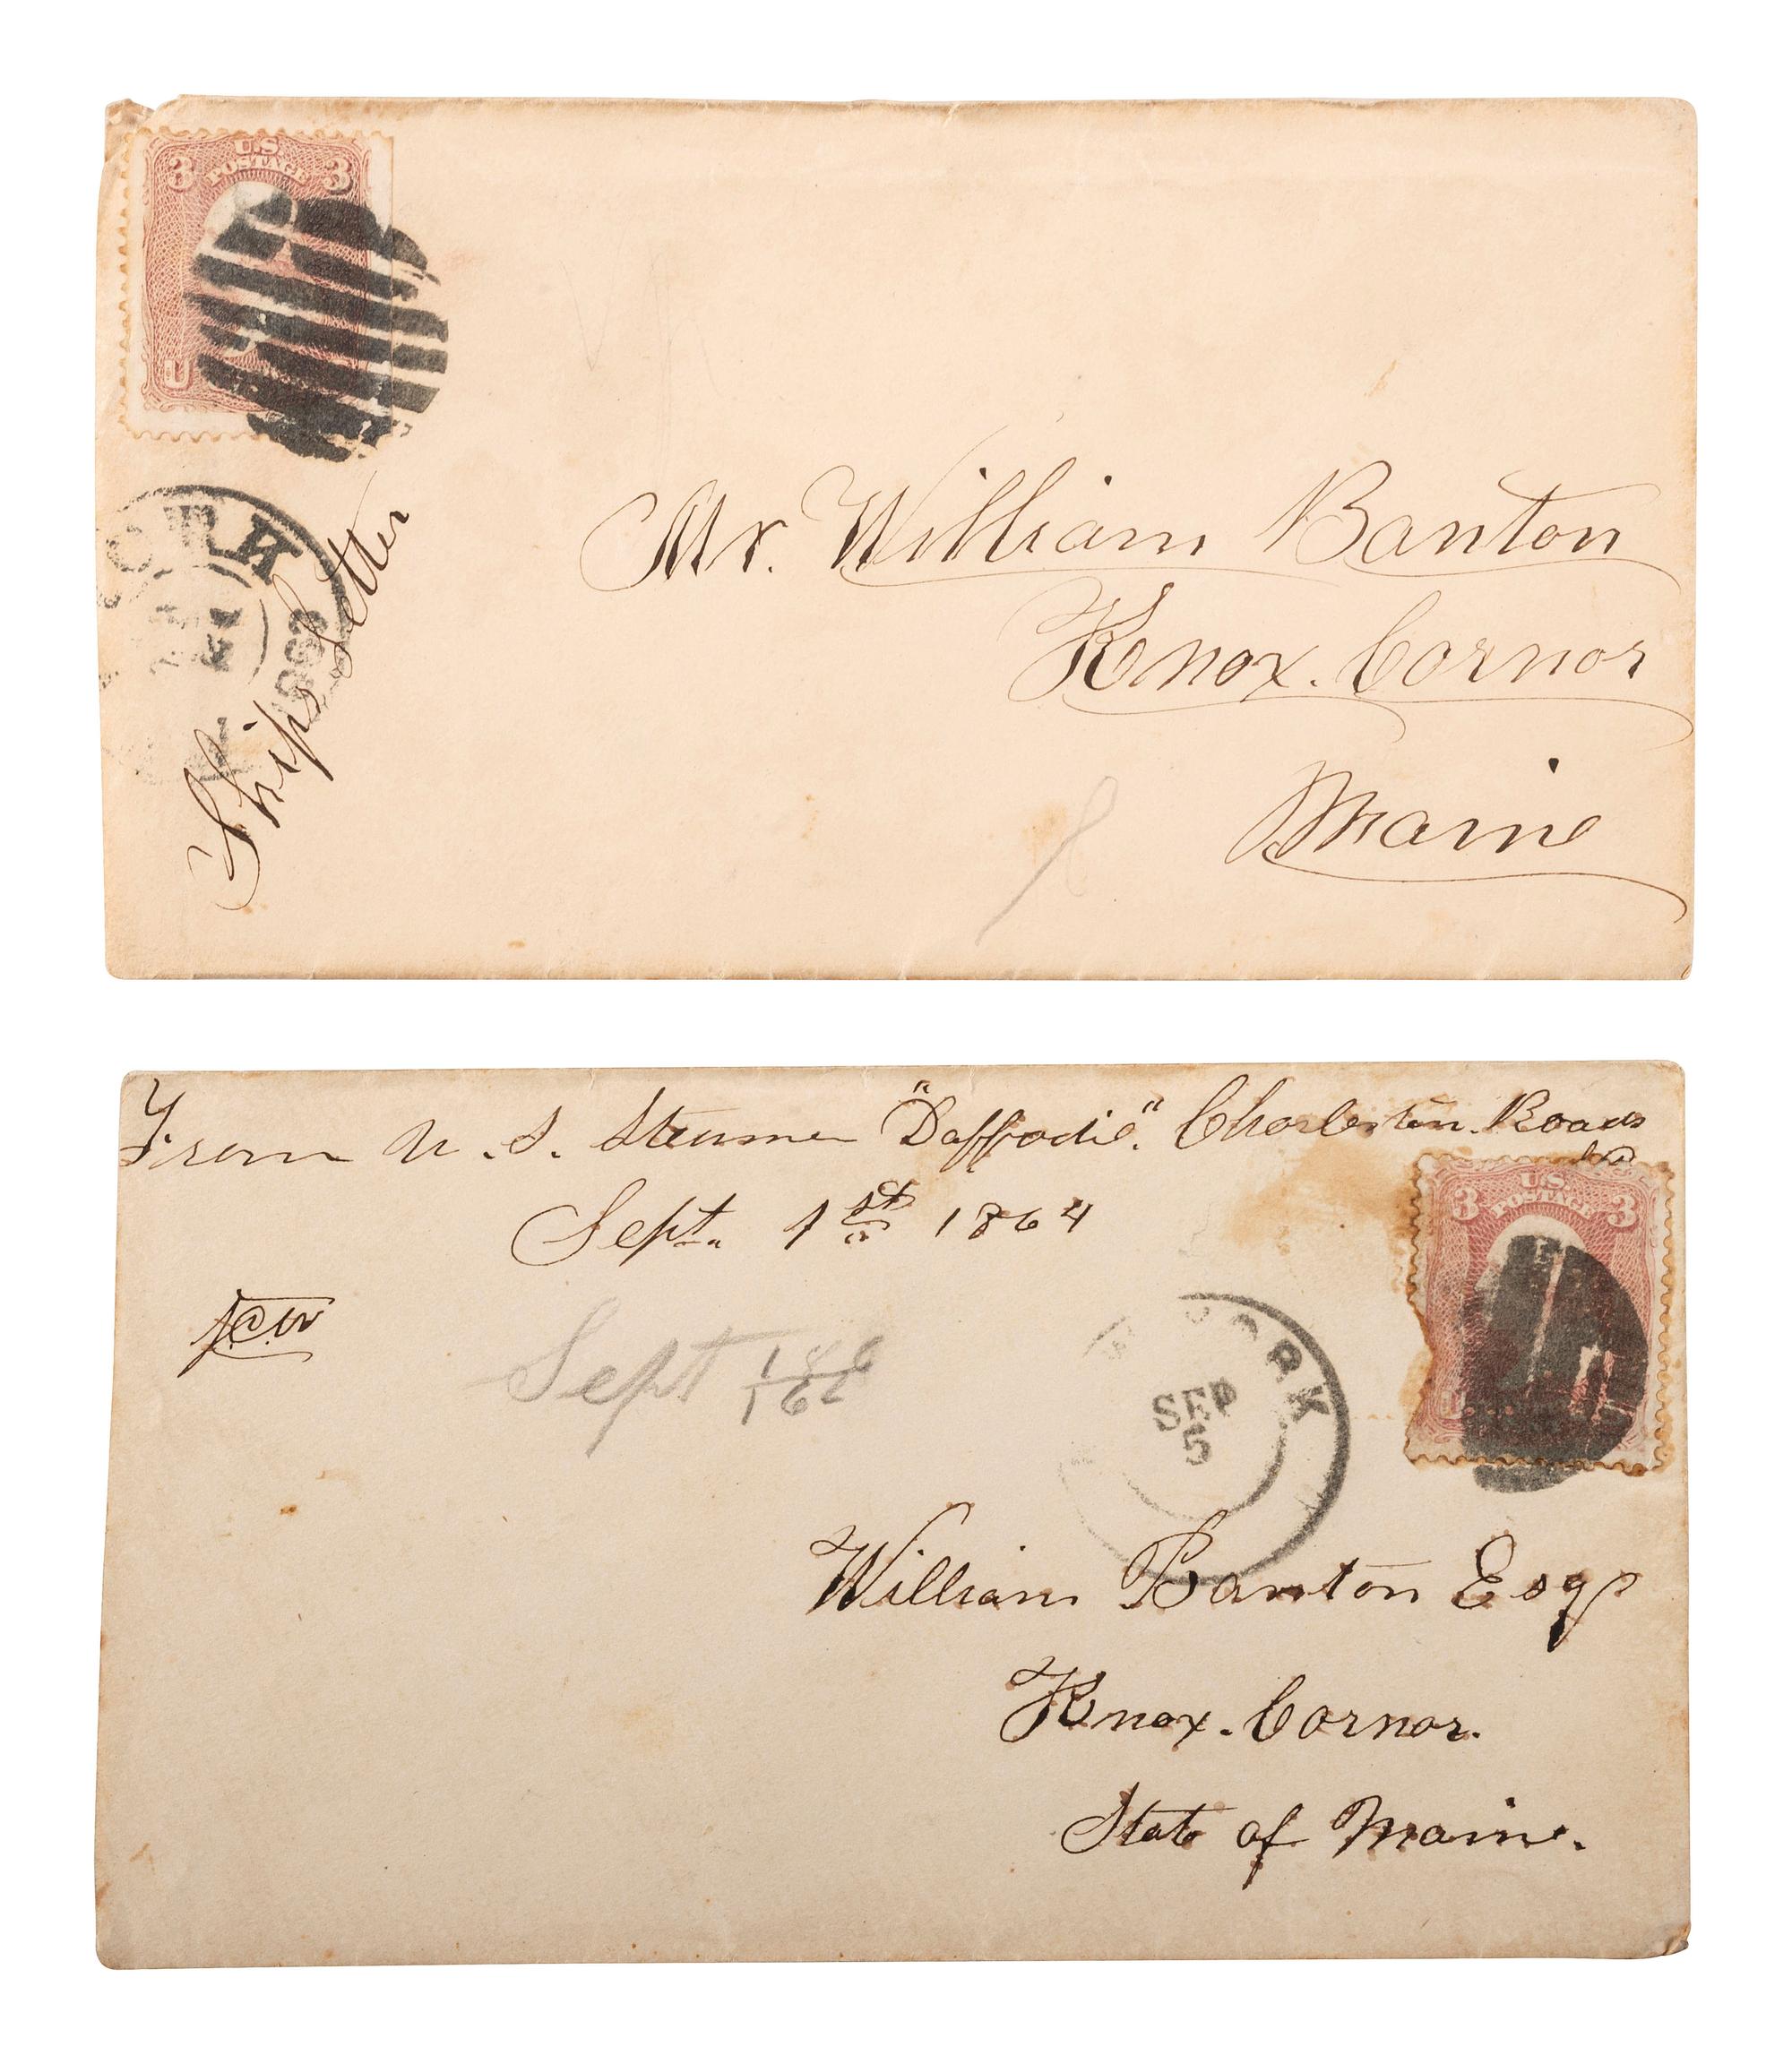 U.S.
POSTAGE
3 3
U
ORK
Ships Letter
Mr. William Banton
Knox. Cornor
Maine
From U.S. Steamer "Daffodil". Charleston. Roads
Sept. 1st 1864
U.S.
POSTAGE
3 3
Sept
YORK
SEP
5
William Banton Esqr
Knox. Cornor.
State of Maine.